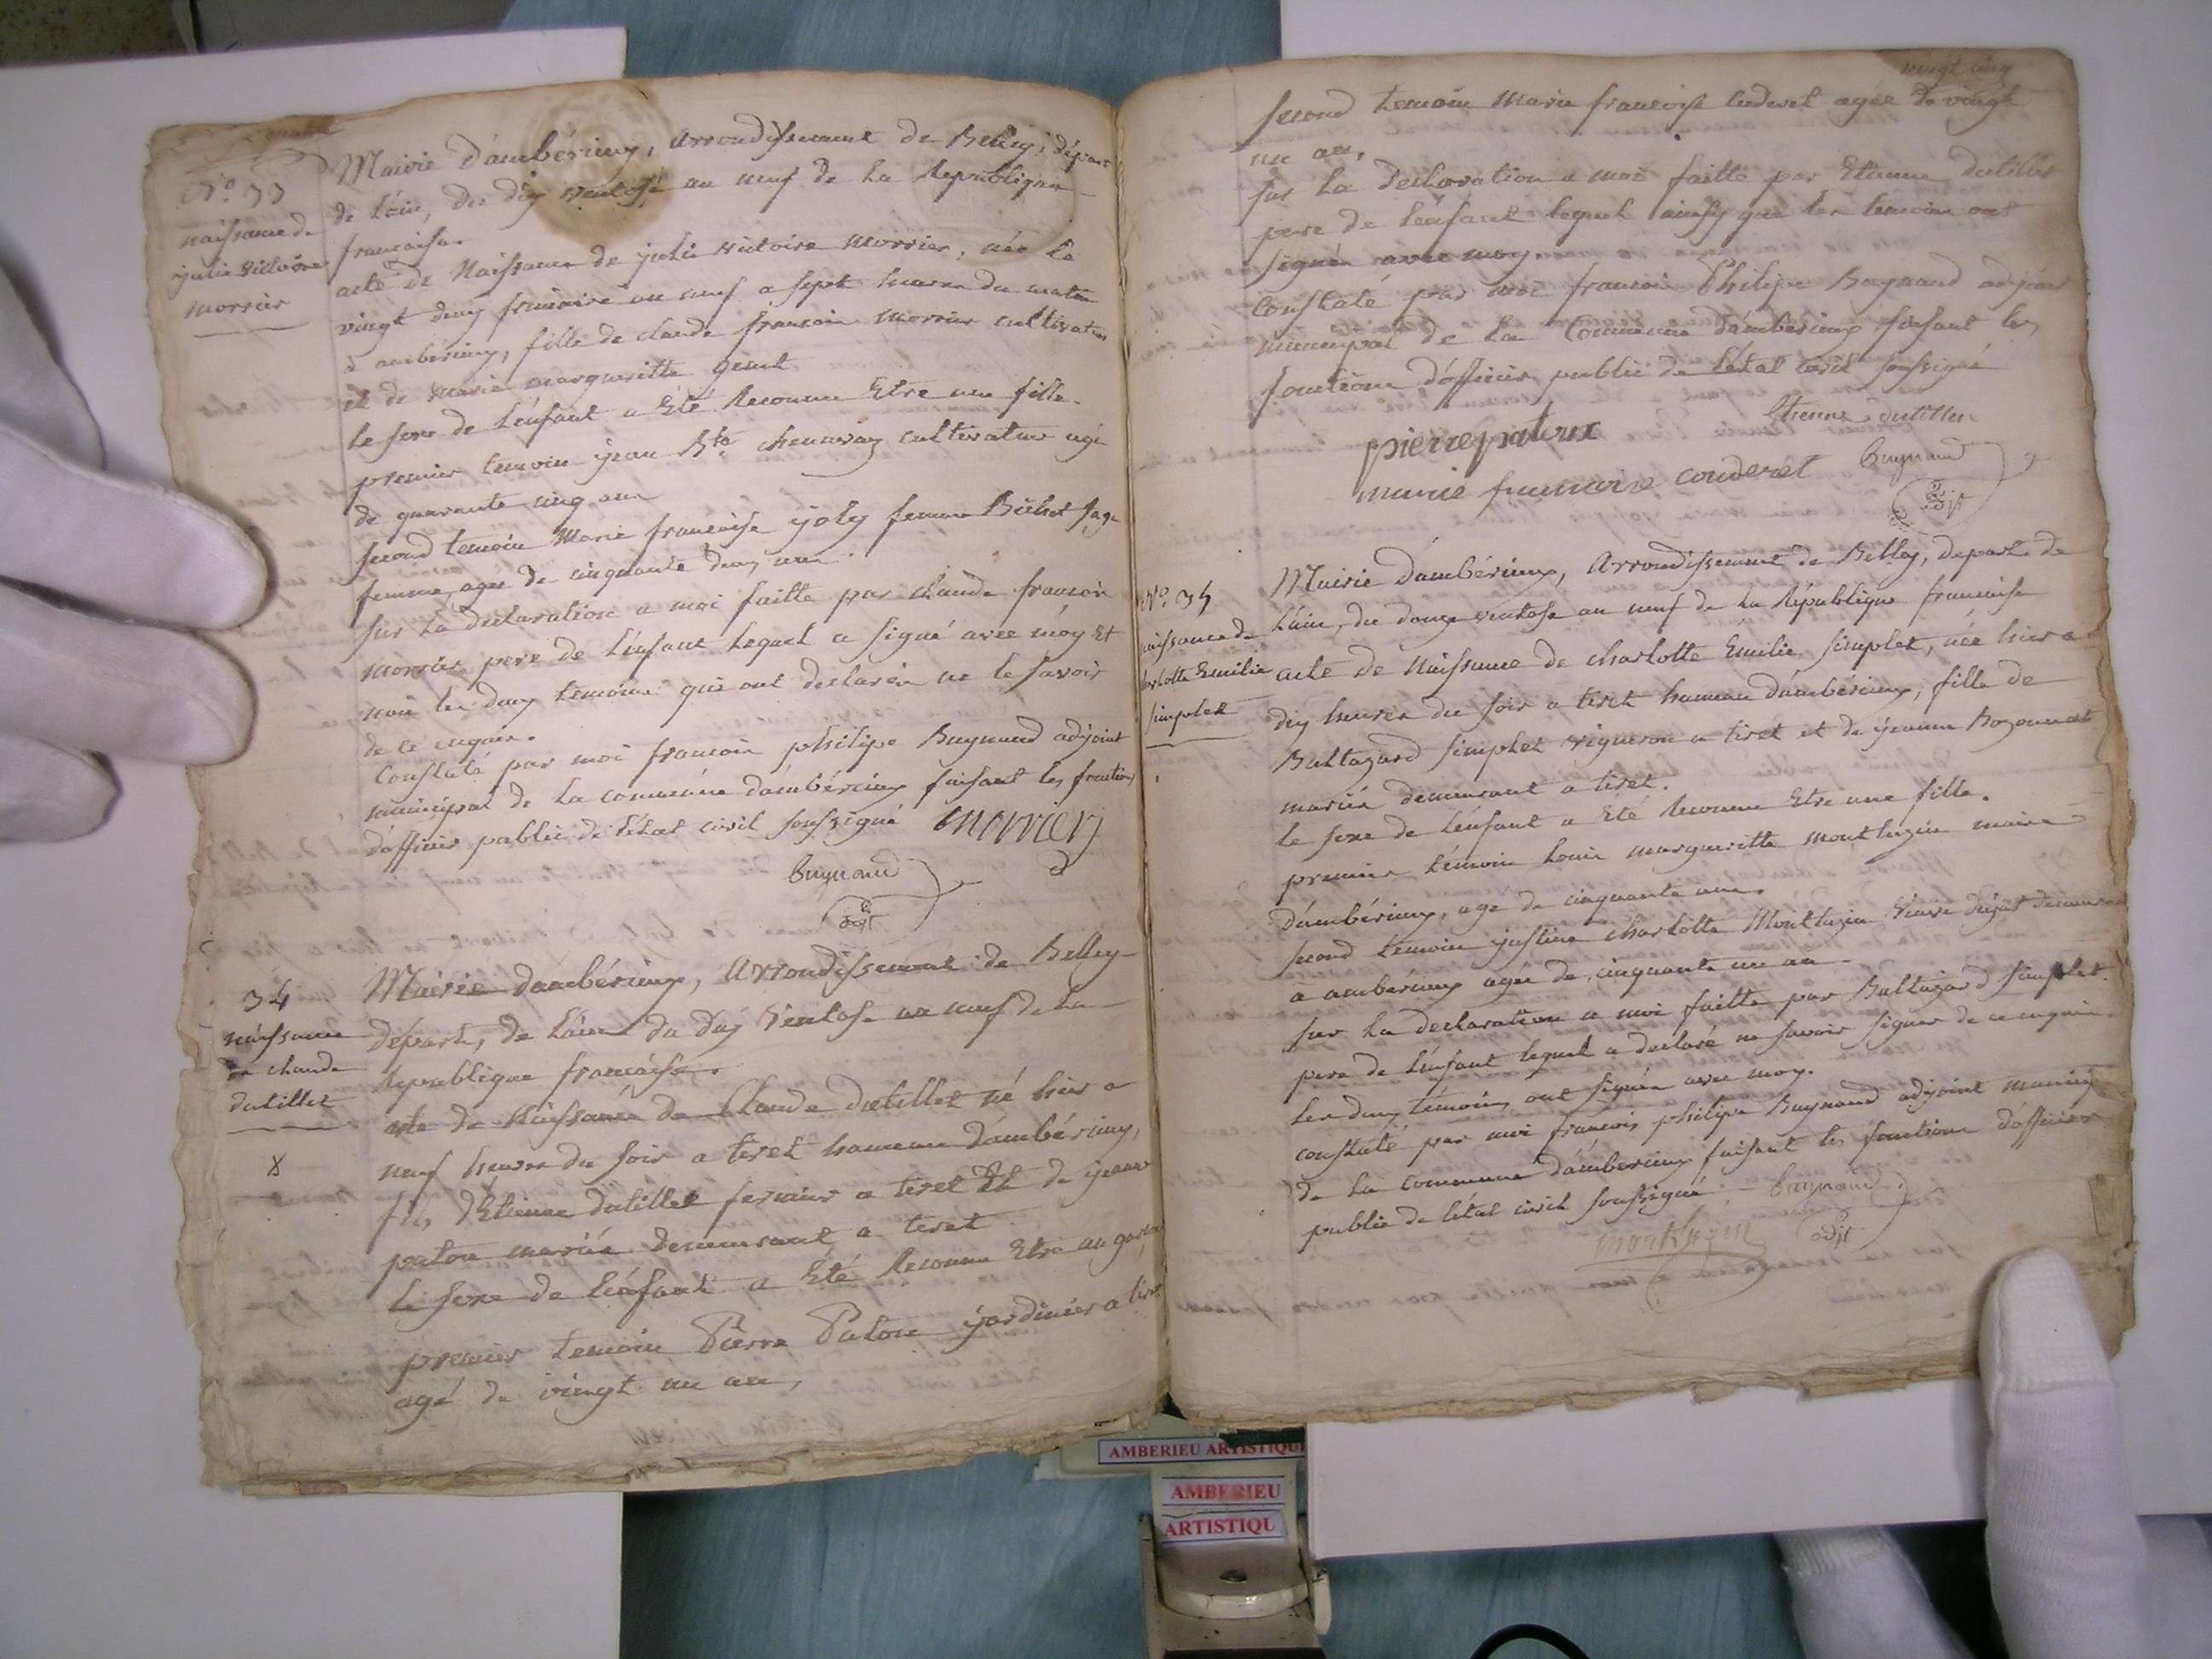 N° 33
naissance de
julie victoire
morrier
Mairie d'ambérieux, arrondissement de Belley, départ
de l'ain, du dix ventose an neuf de la Republique
francaise.
acte de Naissance de julie victoire morrier, née le
vingt deux frimaire an neuf a sept heures du matin
a ambérieux, fille de claude francois morrier cultivateur
et de marie margueritte
le sexe de l'enfant a Eté Reconnu Etre une fille.
premier temoin jean Bte chenavaz cultivateur agé
de quarante cinq ans
second temoin Marie francoise joly femme Bichet sage
femme, agée de cinquante deux ans.
sur la declaration a moi faitte par claude francois
morrier pere de l'enfant lequel a signé avec moy Et
non les deux temoins qui ont declarés ne le savoir
de ce enquis.
Constaté par moi francois philipe Buynand adjoint
municipal de la commune d'ambérieux faisant les fonctions
d'officier public de l'état civil soussigné morrier
Buynand
adjt
34
naissance
de claude
dutillet
x
Mairie d'ambérieux, Arrondissement de Belley
départ, de l'ain du dix Ventose an neuf de la
Republique francaise.
acte de Naissance de Claude dutillet né hier a
neuf heures du soir a tiret hameau d'ambérieux,
fils d'Etienne dutillet fermier a tiret Et de jeanne
paton mariés demeurant a tiret
le sexe de l'enfant a Eté Reconnu Etre un garson
premier temoin Pierre Paton jardinier a tiret
agé de vingt un an,
vingt cinq
second temoin Marie francoise couderet agée de vingt
un an,
sur la declaration a moi faitte par Etienne dutillet
pere de l'enfant lequel ainsy que les temoins ont
signés avec moy
Constaté par moi francois Philipe Buynand adjoint
municipal de la Commune d'ambérieux faisant les
fonctions d'officier public de l'état civil soussigné
Etienne dutillet
pierre patoux
marie francoise couderet Buynand
adjt
N° 35
naissance de
charlotte Emilie
simplet
Mairie d'ambérieux, Arrondissement de Belley, depart. de
l'ain, du douze ventose an neuf de la République francaise
acte de Naissance de charlotte Emilie simplet, née hier a
dix heures du soir a tiret hameau d'ambérieux, fille de
Baltazard simplet vigneron a tiret et de jeanne Bozonnat
mariés demeurant a tiret.
le sexe de l'enfant a Eté Reconnu Etre une fille.
premier témoin louis margueritte montluzin maire
d'ambérieux, age de cinquante ans.
second temoin justine charlotte Montluzin Veuve demeurant
a ambérieux agée de cinquante un an
sur la declaration a moi faitte par Baltazard simplet
pere de l'enfant lequel a declaré ne savoir signer de ce enquis
les deux témoins ont signés avec moy.
constaté par moi francois philipe Buynand adjoint municip
de la commune d'ambérieux faisant les fonctions d'officier
public de l'état civil soussigné Buynand
montluzin
adjt
AMBERIEU ARTISTIQU
AMBERIEU
ARTISTIQU